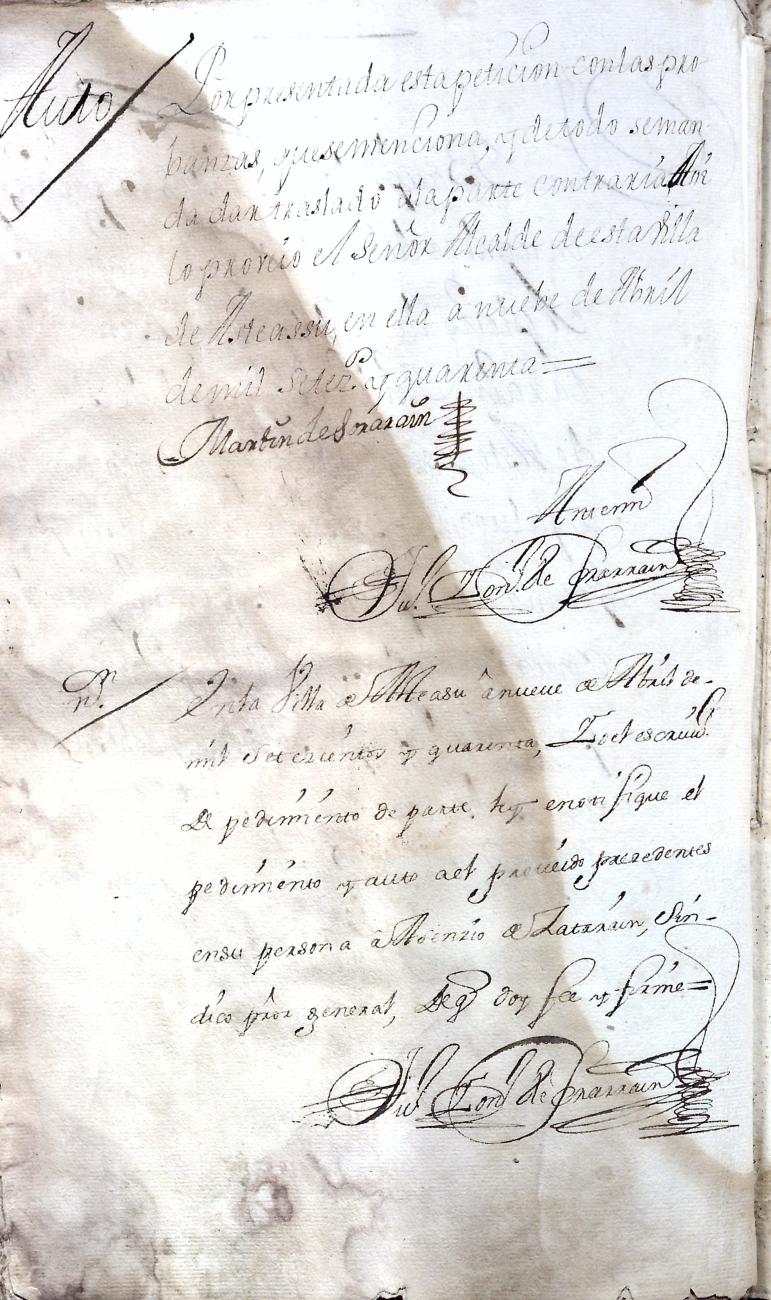 Auto
Por presentada esta peticion con las pro-
banzas, que se menciona, y de todo se man
da dar traslado a la parte contraria Assi
lo proveio el Señor Alcalde de esta Villa
de Asteassu en ella a nuebe de Abril
de mil setez.os y quarenta=
Martin de
Antemi
de
n.on
En la Villa de Asteasu â nueve de Abril de-
mil Setecientos y quarenta, Yo el escriu.o
De pedimiento de parte ley e notifique el
pedimiento y auto a el proueido prezedentes
en su persona â de Latrrain, Sin-
dico prôr general, De q doy fee y firme=
de